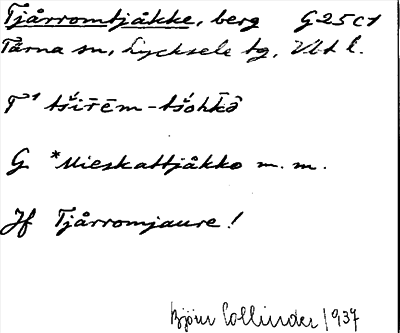 Tjårromtjåkke, berg G25c1
Tärna sn, Lycksele tg, Vbt l.
T¹ tšīrēm-tšohkō
G *Mieskattjåkko m.m.
Jf Tjårromjaure!
Björn Collinder 1937